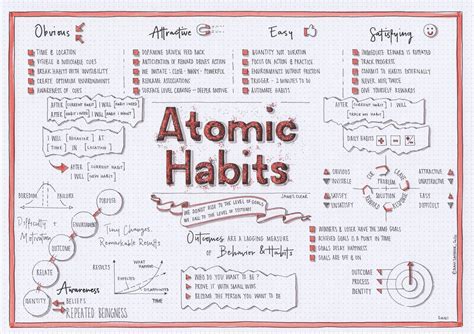 Obvious
TIME & LOCATION
VISIBLE & NOTICEABLE CUES
BREAK HABITS WITH INVISIBILITY
CREATE OPTIMUM ENVIRONMENTS
AWARENESS OF CUES
Attractive
DOPAMINE DRIVEN FEED BACK
ANTICIPATION OF REWARD DRIVES ACTION
WE IMITATE : CLOSE : MANY : POWERFUL
REFRAME ASSOCIATIONS
SURFACE LEVEL CRAVING - DEEPER MOTIVE
Easy
QUANTITY NOT DURATION
FOCUS ON ACTION & PRACTICE
ENVIRONMENTS WITHOUT FRICTION
TRIGGER - 2 MINUTES TO DO
AUTOMATE HABITS
Satisfying
IMMEDIATE REWARD IS REPEATED
TRACK PROGRESS
COMMIT TO HABITS EXTERNALLY
NEVER MISS TWICE
GIVE YOURSELF REWARDS
AFTER [CURRENT HABIT]
I WILL [HABIT I NEED]
I WILL [BEHAVIOR] AT
[TIME] IN [LOCATION]
AFTER [CURRENT HABIT]
I WILL [NEW HABIT]
Atomic
Habits
JAMES CLEAR
WE DO NOT RISE TO THE LEVEL OF GOALS
WE FALL TO THE LEVEL OF SYSTEMS
AFTER [CURRENT HABIT]
DAILY HABITS
OBVIOUS
ATTRACTIVE
EASY
SATISFYING
CUE
CRAVING
RESPONSE
REWARD
PROBLEM
SOLUTION
INVISIBLE
UNATTRACTIVE
DIFFICULT
UNSATISFYING
BOREDOM
FAILURE
Difficulty &
Motivation
PURPOSE
ENVIRONMENT
OUTCOME
RELATE
IDENTITY
Tiny Changes,
Remarkable Results
Awareness
BELIEFS
REPEATED BEINGNESS
Outcomes ARE A LAGGING MEASURE
OF Behavior & Habits
WHO DO YOU WANT TO BE ?
PROVE IT WITH SMALL WINS
BECOME THE PERSON YOU WANT TO BE
WINNERS & LOSERS HAVE THE SAME GOALS
ACHIEVED GOALS IS A POINT IN TIME
GOALS DELAY HAPPINESS
GOALS ARE OFF & ON
OUTCOME
PROCESS
IDENTITY